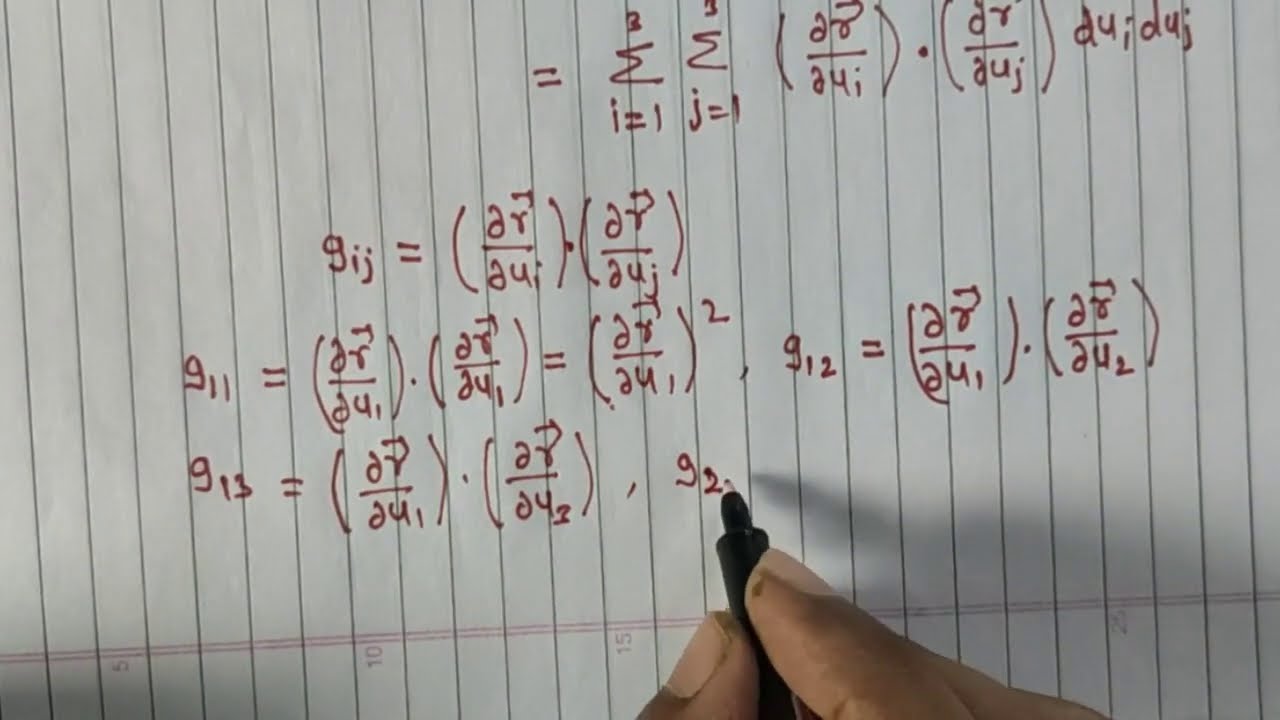 = ∑_{i=1}^{3} ∑_{j=1}^{3} (∂r⃗/∂u_i) · (∂r⃗/∂u_j) du_i du_j
g_{ij} = (∂r⃗/∂u_i) · (∂r⃗/∂u_j)
g_{11} = (∂r⃗/∂u_1) · (∂r⃗/∂u_1) = (∂r⃗/∂u_1)^2 , g_{12} = (∂r⃗/∂u_1) · (∂r⃗/∂u_2)
g_{13} = (∂r⃗/∂u_1) · (∂r⃗/∂u_3) , g_2
5 10 15 25